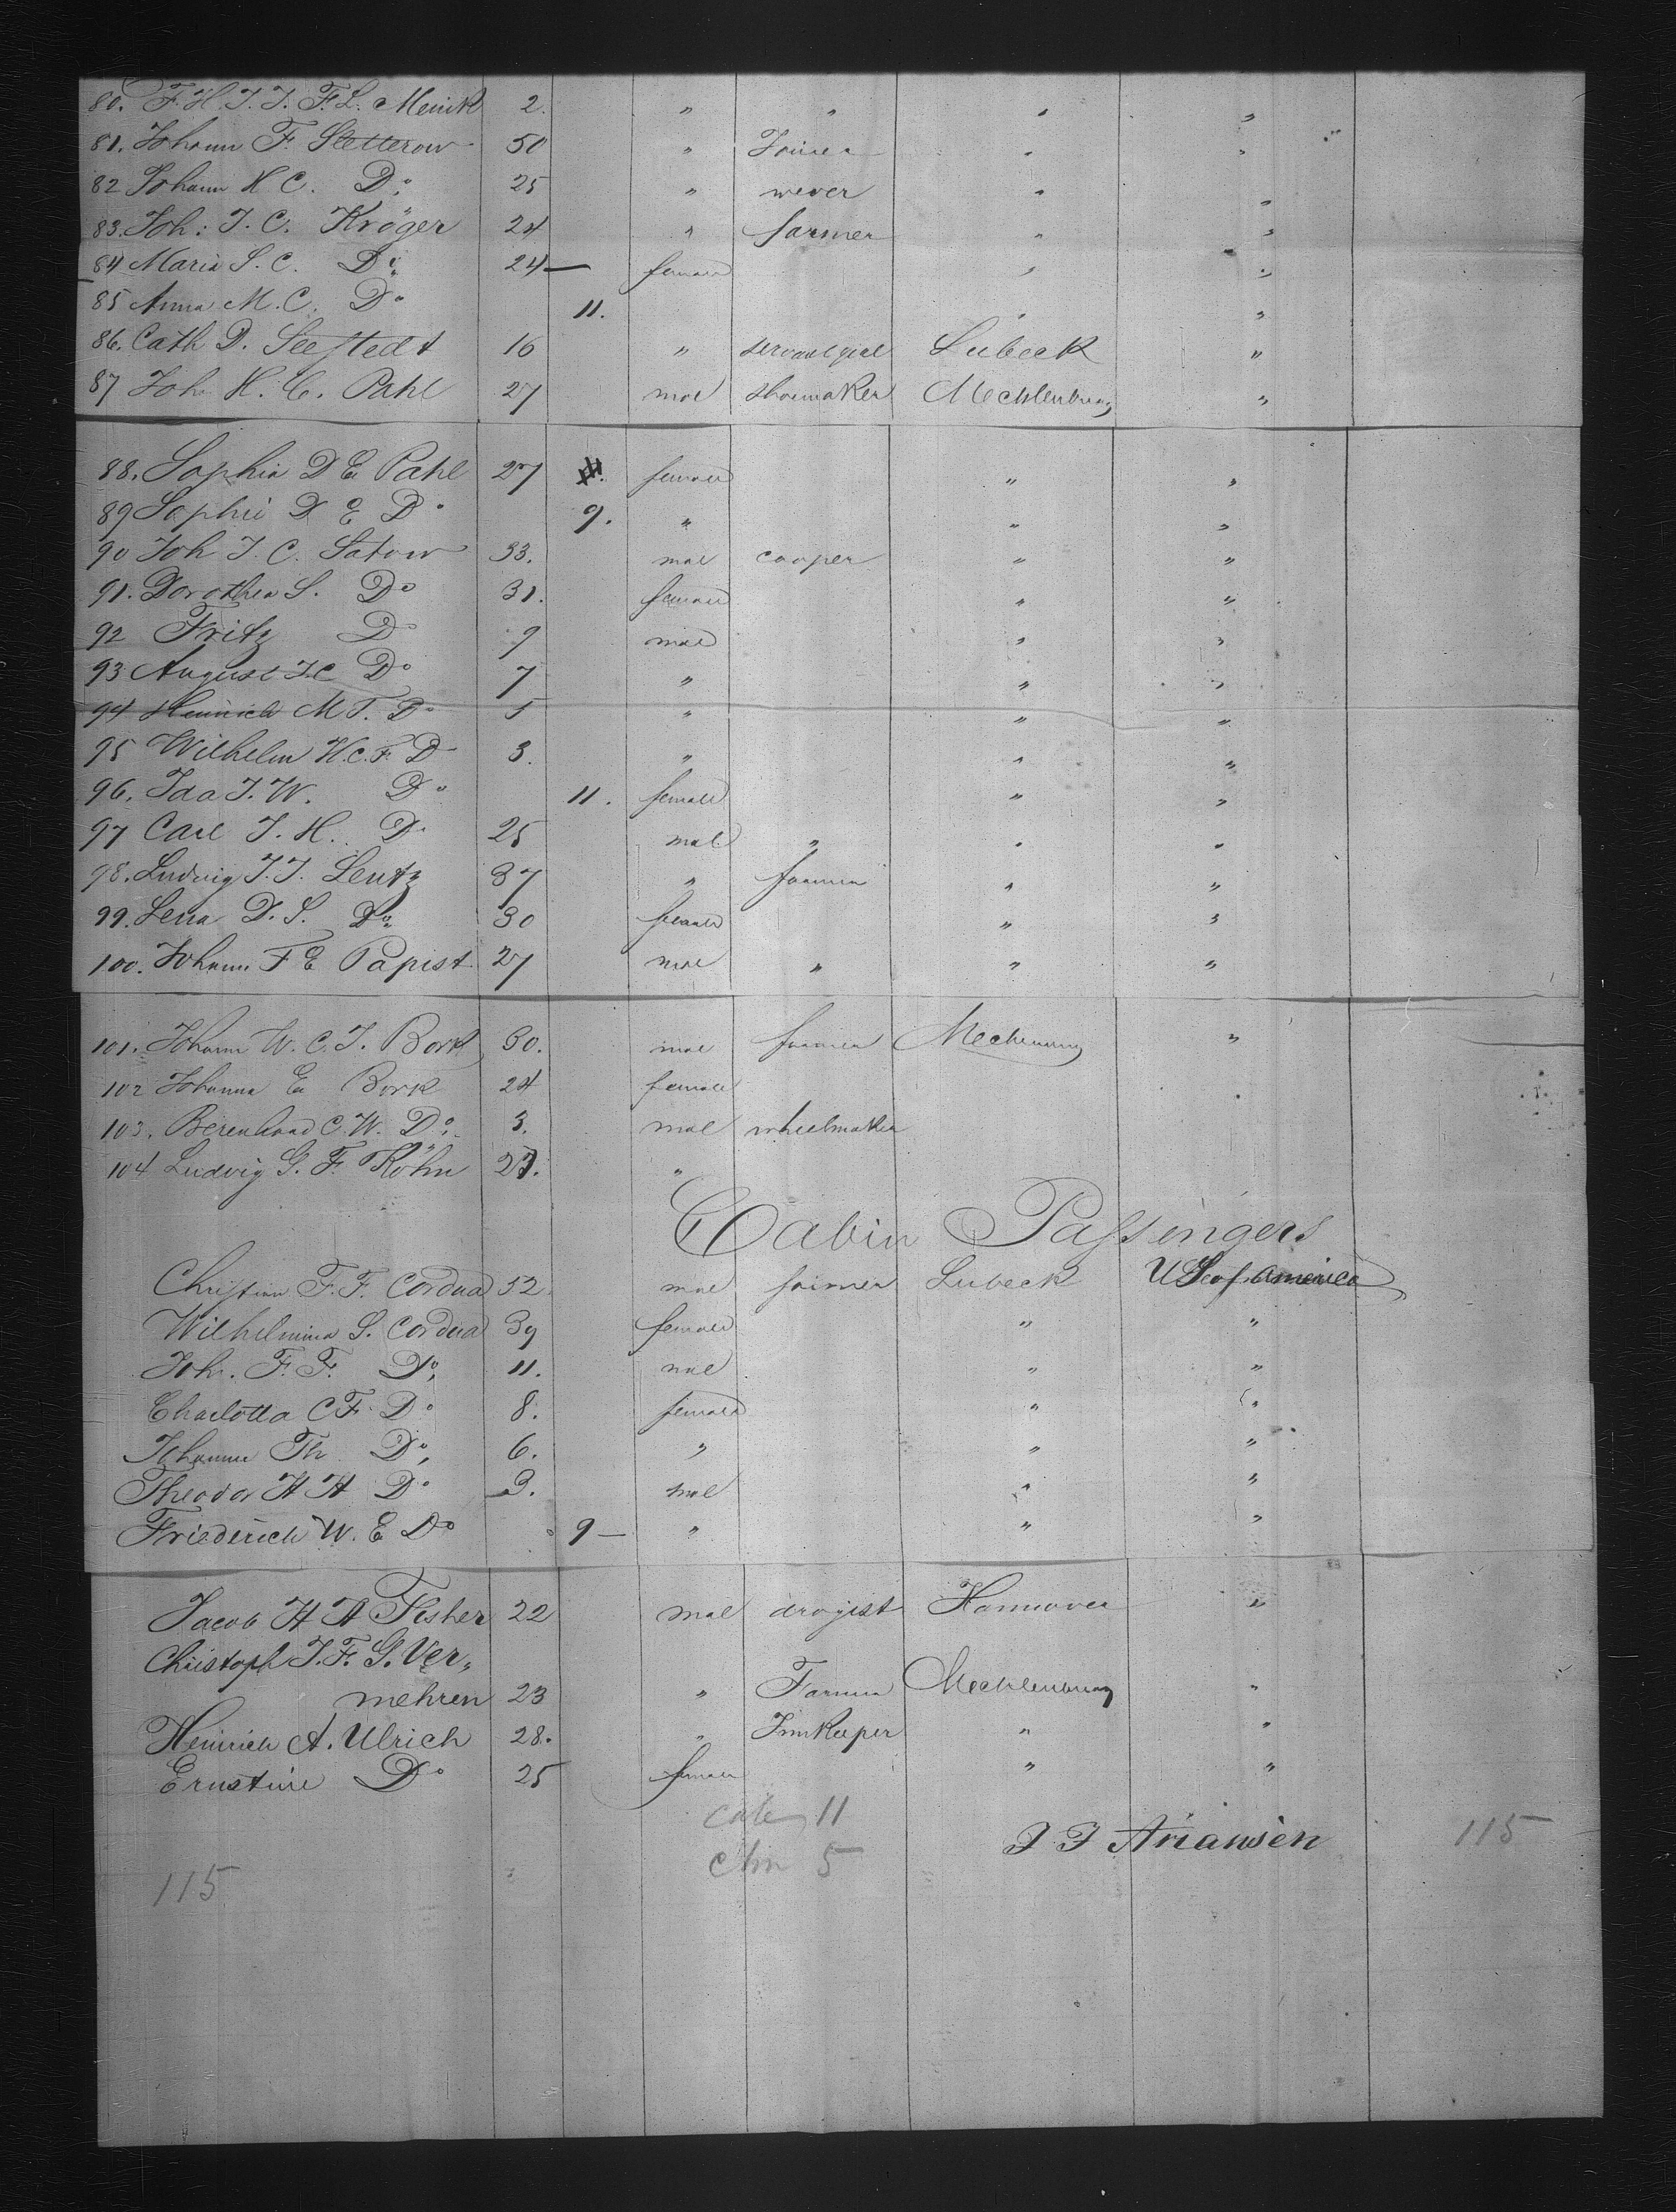 80. F. H. J. J. F. L. Menck 2. " " " "
81. Johann F. Stetterow 50 " Joiner " "
82 Johann H C. Do 25 " wever " "
83. Joh: J. C. Kröger 24 " farmer " "
84 Maria S. C. Do 24 — female " "
85 Anna M. C. Do 11. " "
86. Cath D. Seestedt 16 " servant girl Lubeck "
87 Joh H. C. Pahl 27 mal shoemaker Mecklenburg "
88. Sophia D E Pahl 27 female " "
89 Sophi D E Do 9. " " "
90 Joh J. C. Satow 33. mal cooper " "
91. Dorothea S. Do 31. female " "
92 Fritz Do 9 male " "
93 August J C Do 7 " " "
94 Heinrich M T. Do 5 " " "
95 Wilhelm H. C. F. Do 3. " " "
96. Ida J. W. Do 11. female " "
97 Carl J. H. Do 25 male " " "
98. Ludwig J. J. Lentz 37 " farmer " "
99. Lena D. S. Do 30 female " "
100. Johann F E Papist 27 mal " " "
101. Johann W. C. J. Bork 30. mal farmer Mecklenburg "
102 Johanna E Bork 24 female
103. Berenhard C. W. Do 3. mal wheelmaker
104 Ludvig G. F. Köhn 27. "
Cabin Passengers
Christian F. F. Cordua 52 mal farmer Lubeck US of America
Wilhelmina S. Cordua 39 female " "
Joh. F. F. Do 11. mal " "
Charlotta C F. Do 8. female " "
Johanne Th Do 6. " " "
Theodor H H Do 3. mal " "
Friederich W. E Do 9 — " " "
Jacob H A Fisher 22 mal drogist Hannover "
Christoph J. F. G. Ver„
mehren 23 " Farmer Mecklenburg "
Heinrich A. Ulrich 28. " Innkeeper " "
Ernstine Do 25 female " "
11
J J Ariansen 115
5
115